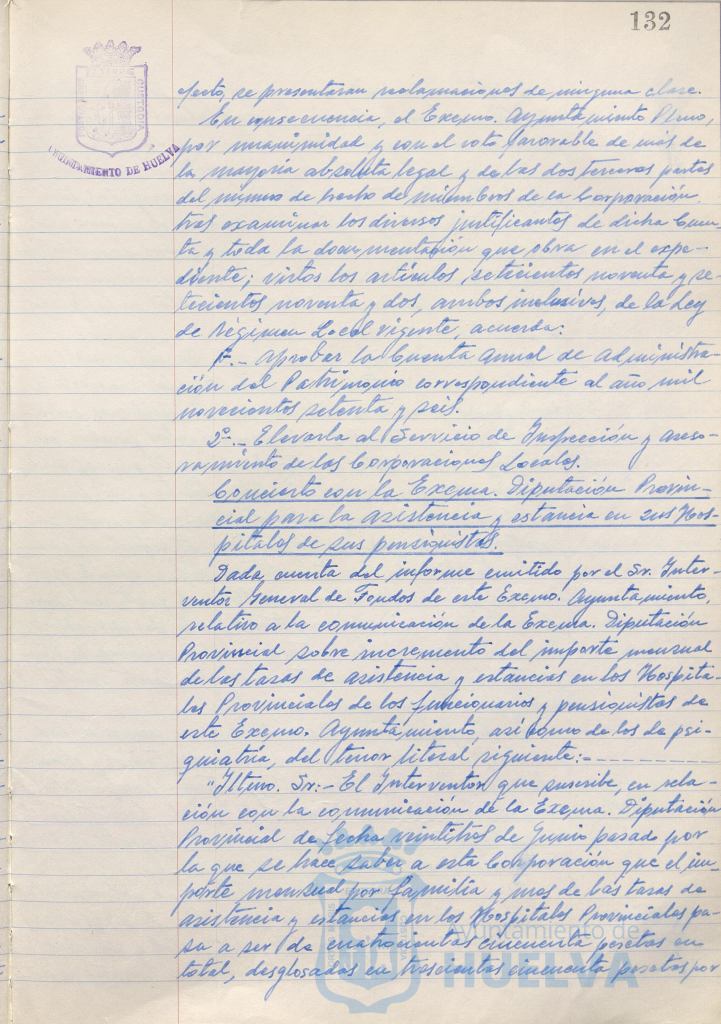 132
AYUNTAMIENTO DE HUELVA
efecto, se presentaran reclamaciones de ninguna clase.
En consecuencia, el Excmo. Ayuntamiento Pleno,
por unanimidad y con el voto favorable de más de
la mayoría absoluta legal y de las dos terceras partes
del número de hecho de miembros de la Corporación,
tras examinar los diversos justificantes de dicha Cuen-
ta y toda la documentación que obra en el expe-
diente; vistos los artículos, setecientos noventa y se-
tecientos noventa y dos, ambos inclusives, de la Ley
de Régimen Local vigente, acuerda:
1º.- Aprobar la Cuenta Anual de Administra-
ción del Patrimonio correspondiente al año mil
novecientos setenta y seis.
2º.- Elevarla al Servicio de Inspección y aseso-
ramiento de las Corporaciones Locales.
Concierto con la Excma. Diputación Provin-
cial para la asistencia y estancia en sus Hos-
pitales de sus pensionistas.
Dada cuenta del informe emitido por el Sr. Inter-
ventor General de Fondos de este Excmo. Ayuntamiento,
relativo a la comunicación de la Excma. Diputación
Provincial sobre incremento del importe mensual
de las tasas de asistencia y estancias en los Hospita-
les Provinciales de los funcionarios y pensionistas de
este Excmo. Ayuntamiento, así como de los de psi-
quiatría, del tenor literal siguiente:- - - - - - - -
"Iltmo. Sr:- El Interventor que suscribe, en rela-
ción con la comunicación de la Excma. Diputación
Provincial de fecha veintitres de Junio pasado por
la que se hace saber a esta Corporación que el im-
porte mensual por familia y mes de las tasas de
asistencia y estancias en los Hospitales Provinciales pa-
sa a ser de cuatrocientas cincuenta pesetas en
total, desglosadas en trescientas cincuenta pesetas por
Ayuntamiento de
HUELVA